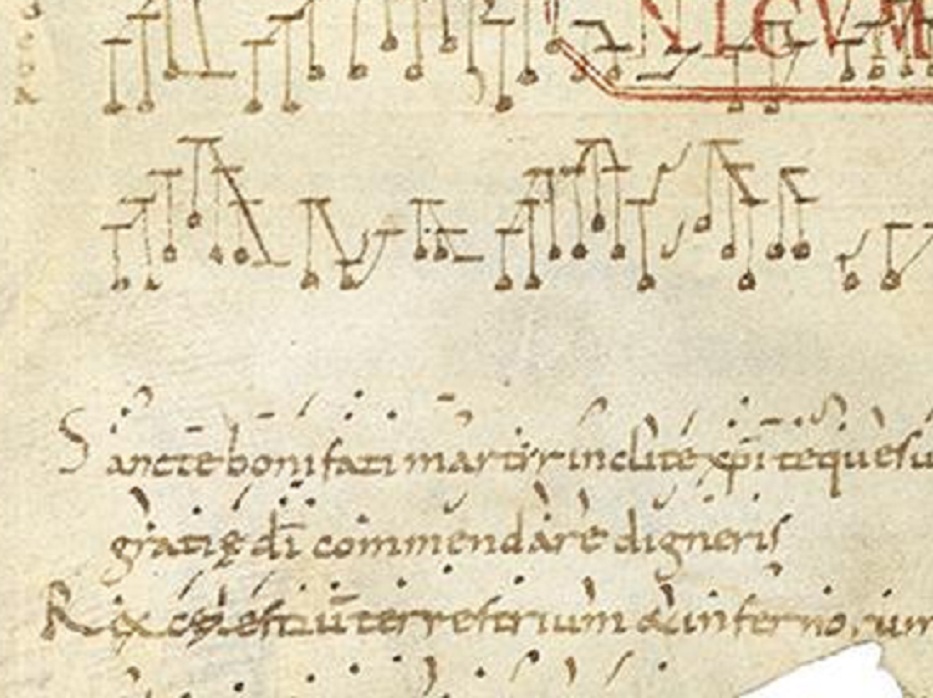 NICVM
Sancte bonifati martir inclite xp̄i te quesu
gratię dī commendare digneris
Rex cęlestiū terrestrium & infernorum